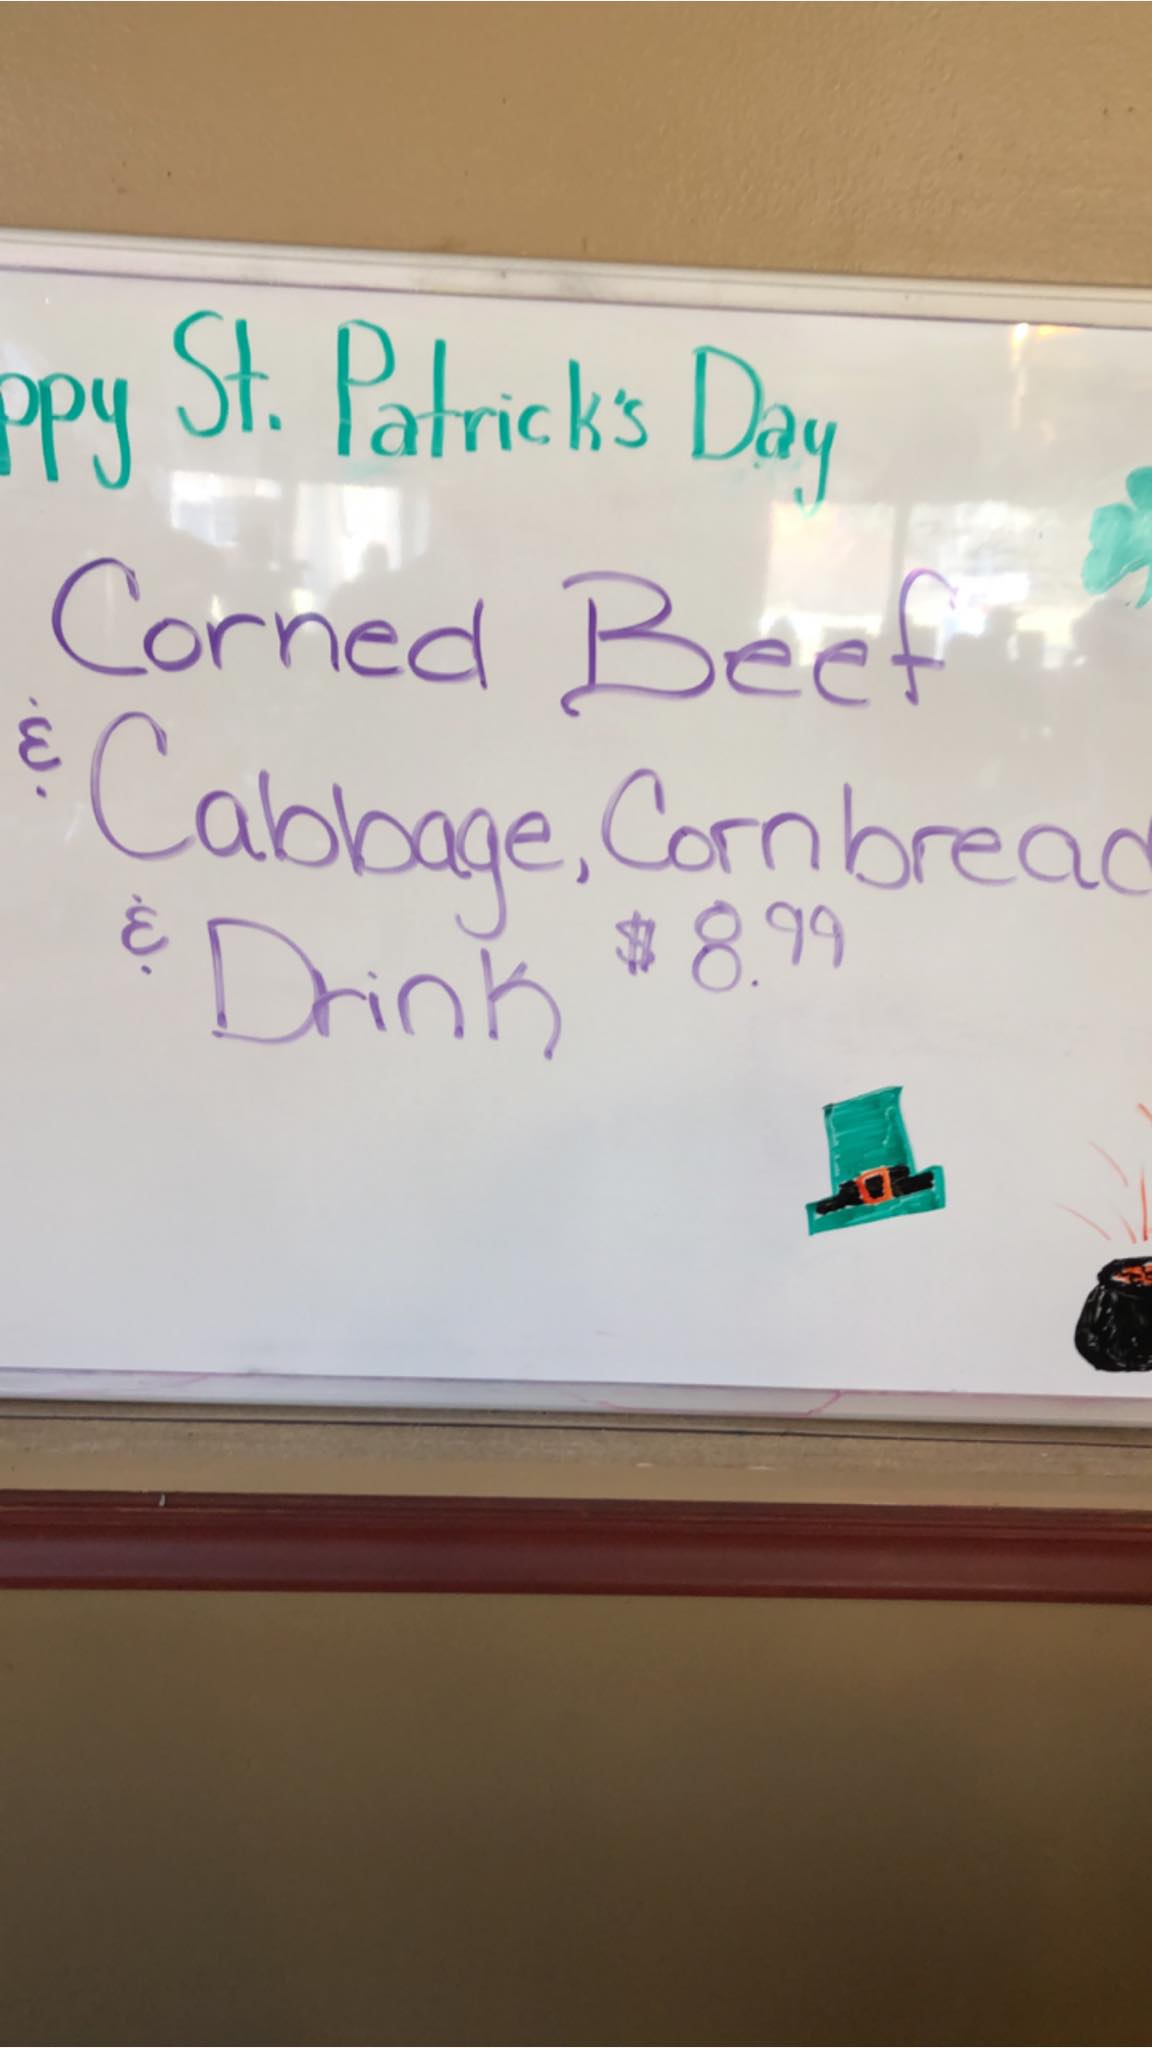 ppy St. Patrick's Day
Corned Beef
& Cabbage, Cornbread
& Drink $8.99